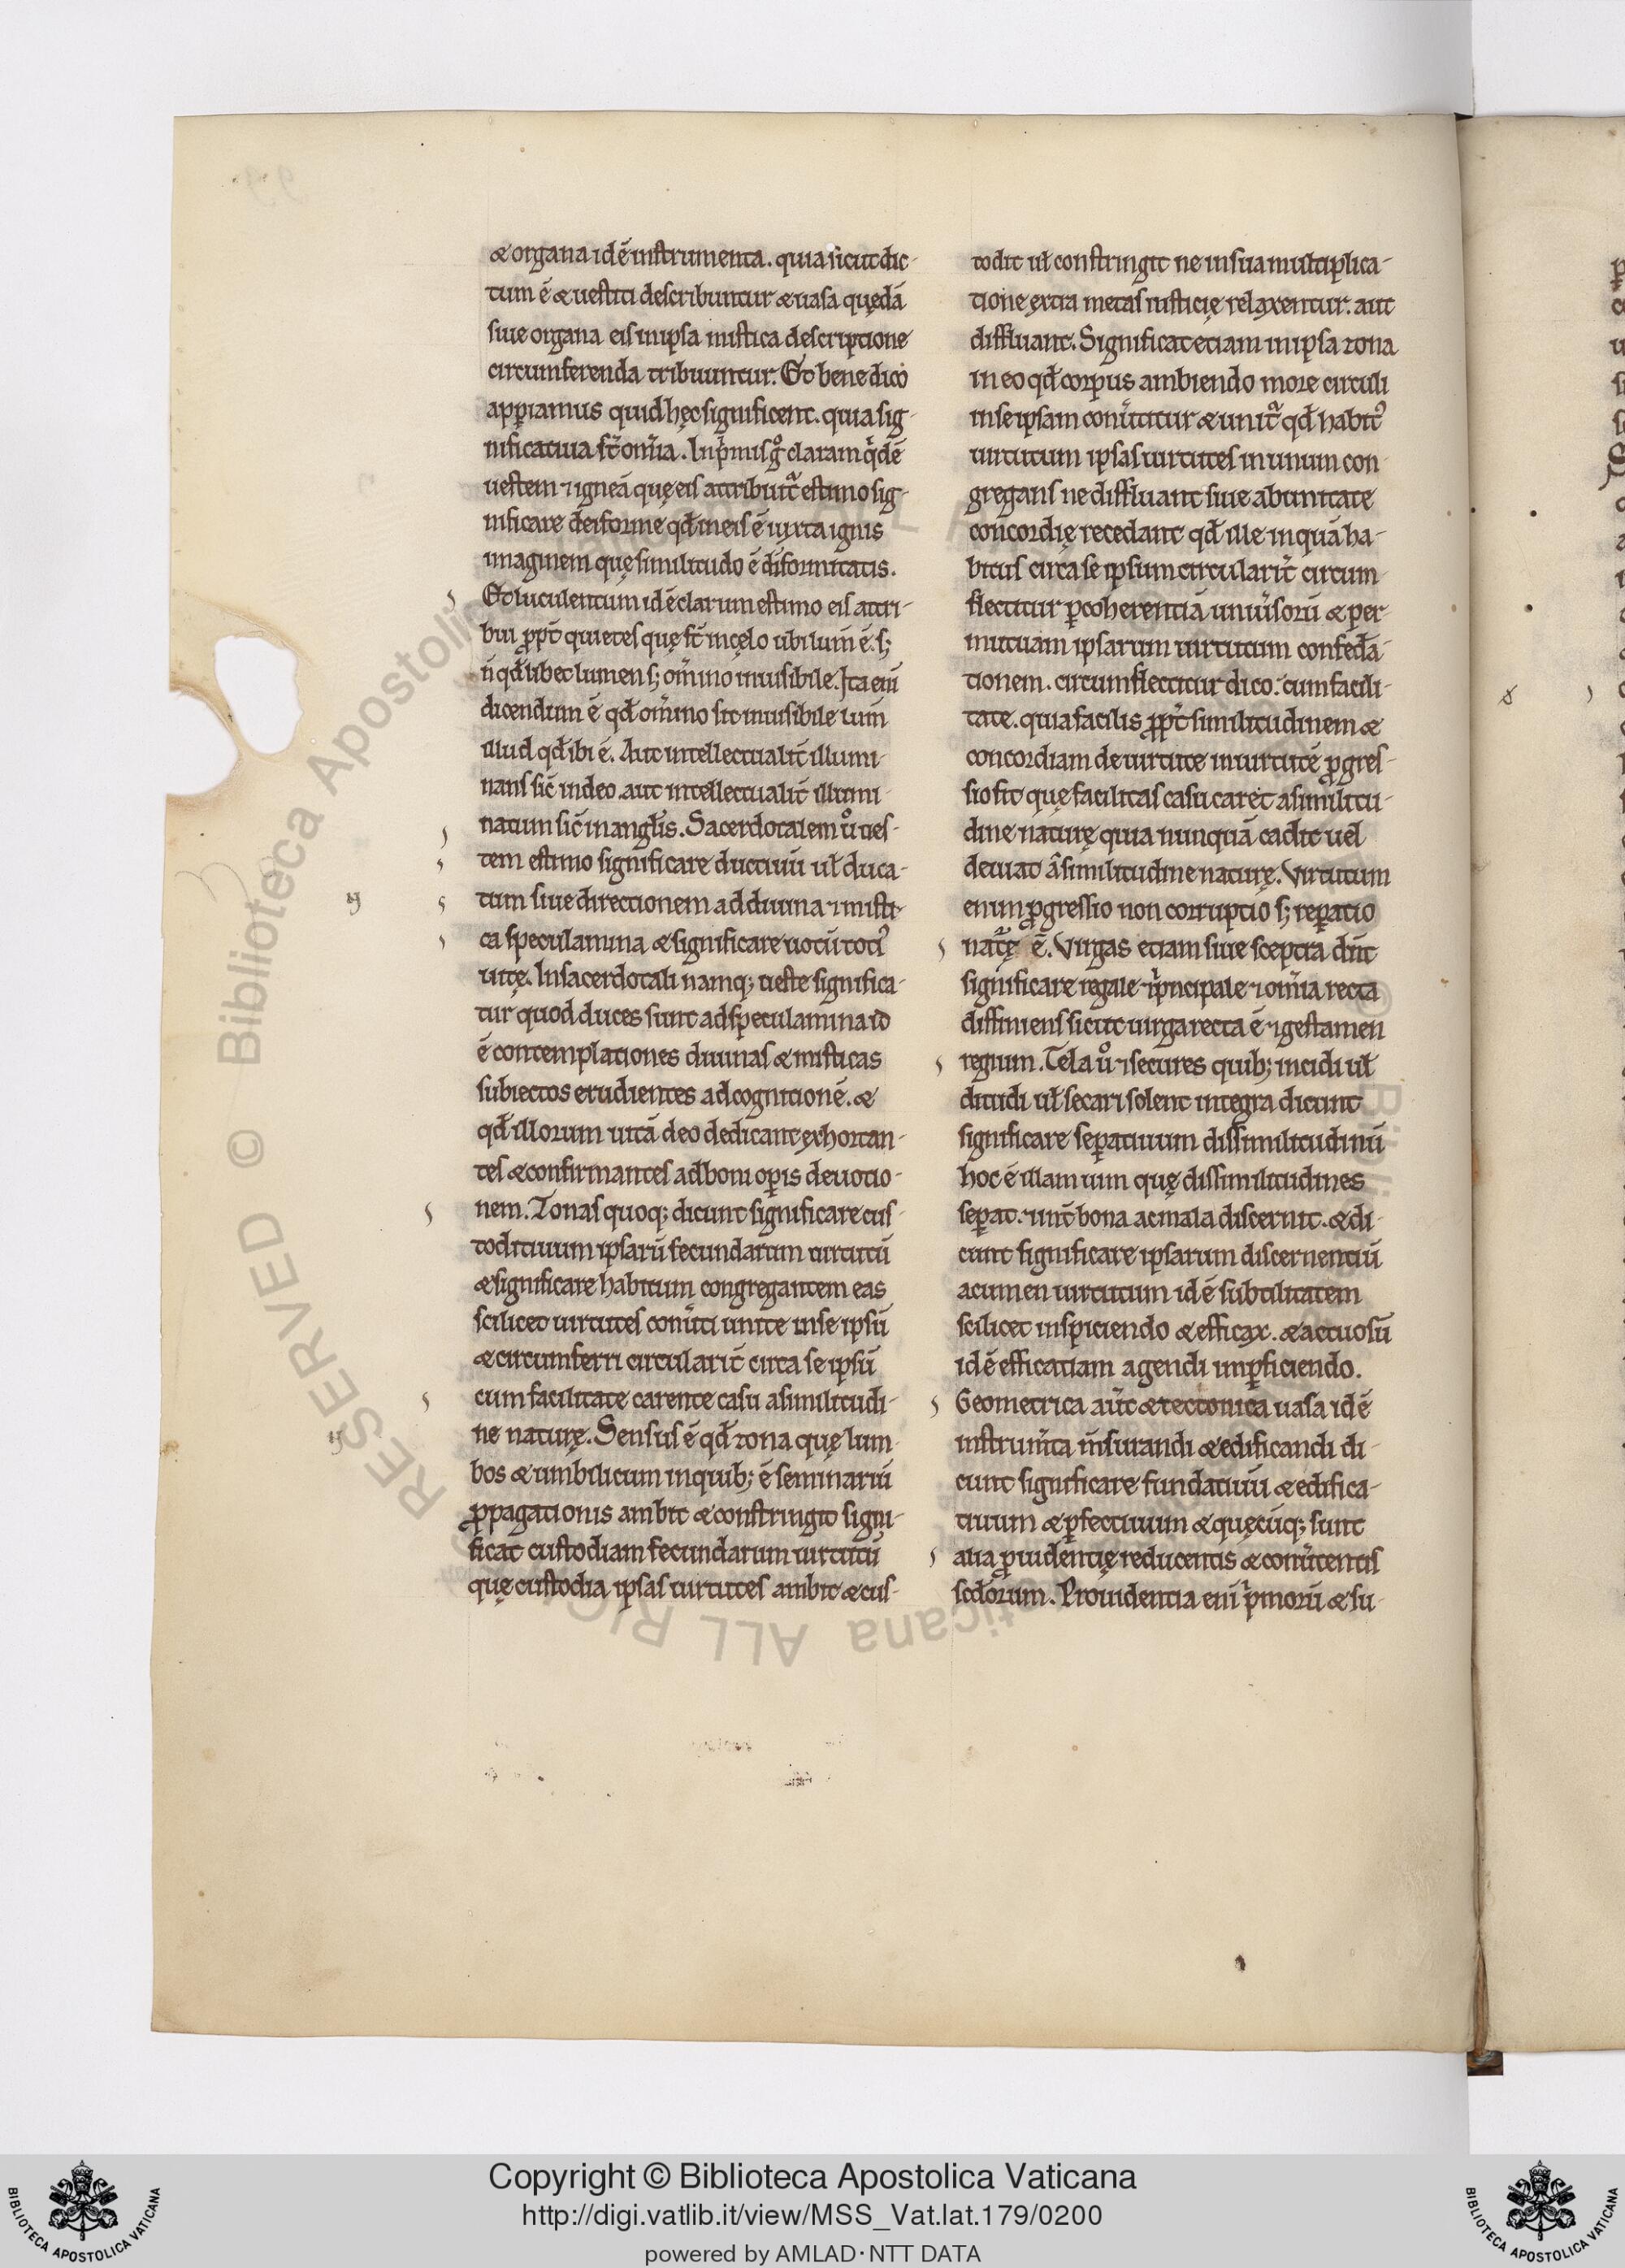 & organa id ē instrumenta. quia sicut dic-
tum ē & uestiti describuntur & uasa quędā
siue organa eis in ipsa mistica descriptione
circumferenda tribuuntur. Et bene dico
apꝑiamus quid hęc significent. quia sig-
nificatiua st̄ om̄ia. Inp̄mis gͦ claram qͥdē
uestem ⁊ igneā quę eis attribuit᷑ estimo sig-
nificare deiforme qđ in eis ē iuxta ignis
imaginem quę similitudo ē diformitatis.
Et luculentum id ē clarum estimo eis attri-
bui ꝓpt̄ quietes quę st̄ in cęlo ubi lum̄ ē. s;
n̄ qđlibet lumen s; om̄ino inuisibile. Ita eni̅
dicendum ē qđ om̄ino sit inuisibile lum̄
illud qđ ibi ē. Aut intellectualit̄ illumi-
nans sic̄ in deo. aut intellectualit̄ illumi-
natum sic̄ in angl̄is. Sacerdotalem uͦ ues-
tem estimo significare ductiuū ul̄ duca-
tum siue directionem ad diuina ⁊ misti-
ca speculamina & significare uotū toti᷒
uitę. In sacerdotali namq; ueste significa-
tur quod duces sunt ad speculamina id
ē contemplationes diuinas & misticas
subiectos erudientes ad cognitionē. &
qđ illorum uitā deo dedicant exhortan-
tes & confirmantes ad boni oꝑis deuotio-
nem. Zonas quoq; dicunt significare cus-
toditiuum ipsarū fecundarum uirtutū
& significare habitum congregantem eas
scilicet uirtutes conu̅ti unite in se ipsū
& circumferri circularit̄ circa se ipsū
cum facilitate carente casu a similitudi-
ne naturę. Sensus ē qđ zona quę lum-
bos & umbilicum in quib; ē seminariū
ꝓpagationis ambit & constringit signi-
ficat custodiam fecundarum uirtutū
quę custodia ipsas uirtutes ambit & cus-
todit ul̄ constringit ne in sua multiplica-
tione extra metas iusticię relaxentur. aut
diffluant. Significat etiam in ipsa zona
in eo qđ corpus ambiendo more circuli
in se ipsam conu̅titur & unit᷑ qđ habit᷒
uirtutum ipsas uirtutes in unum con-
gregans ne diffluant siue ab unitate
concordię recedant qđ ille inquā ha-
bitus circa se ipsum circularit̄ circum-
flectitur ꝑ coherentiā uniu̅sorū & per
mutuam ipsarum uirtutum confedā-
tionem. circumflectitur dico. cum facili-
tate. quia facilis ꝓpt̄ similitudinem &
concordiam de uirtute in uirtutē ꝓgres-
sio fit quę facilitas casu caret a similitu-
dine naturę quia nunquā cadit uel
deuiat a similitudine naturę. Virtutum
enim ꝓgressio non corruptio s; reꝑatio
nat᷑ę ē. Virgas etiam siue sceptra dn̄t
significare regale ⁊ pͥncipale ⁊ om̄ia recta
diffiniens sicut uirga recta ē ⁊ gestamen
regium. Tela uͦ ⁊ secures quib; incidi ul̄
diuidi ul̄ secari solent integra dicunt
significare seꝑatiuum dissimilitudinū
hoc ē illam uim quę dissimilitudines
seꝑat. ⁊ int̄ bona ac mala discernit. & di-
cunt significare ipsarum discernentiū
acumen uirtutum id ē subtilitatem
scilicet inspiciendo & efficax. & actuosū
id ē efficatiam agendi in ꝑficiendo.
Geometrica au̅t & tectonica uasa id ē
instrum̄ta m̄surandi & edificandi di-
cunt significare fundatiuū & edifica-
tiuum & ꝑfectiuum & quęcūq; sunt
alia ꝓuidentię reducentis & conu̅tentis
scđorum. Prouidentia eni̅ pͥmorū & su-